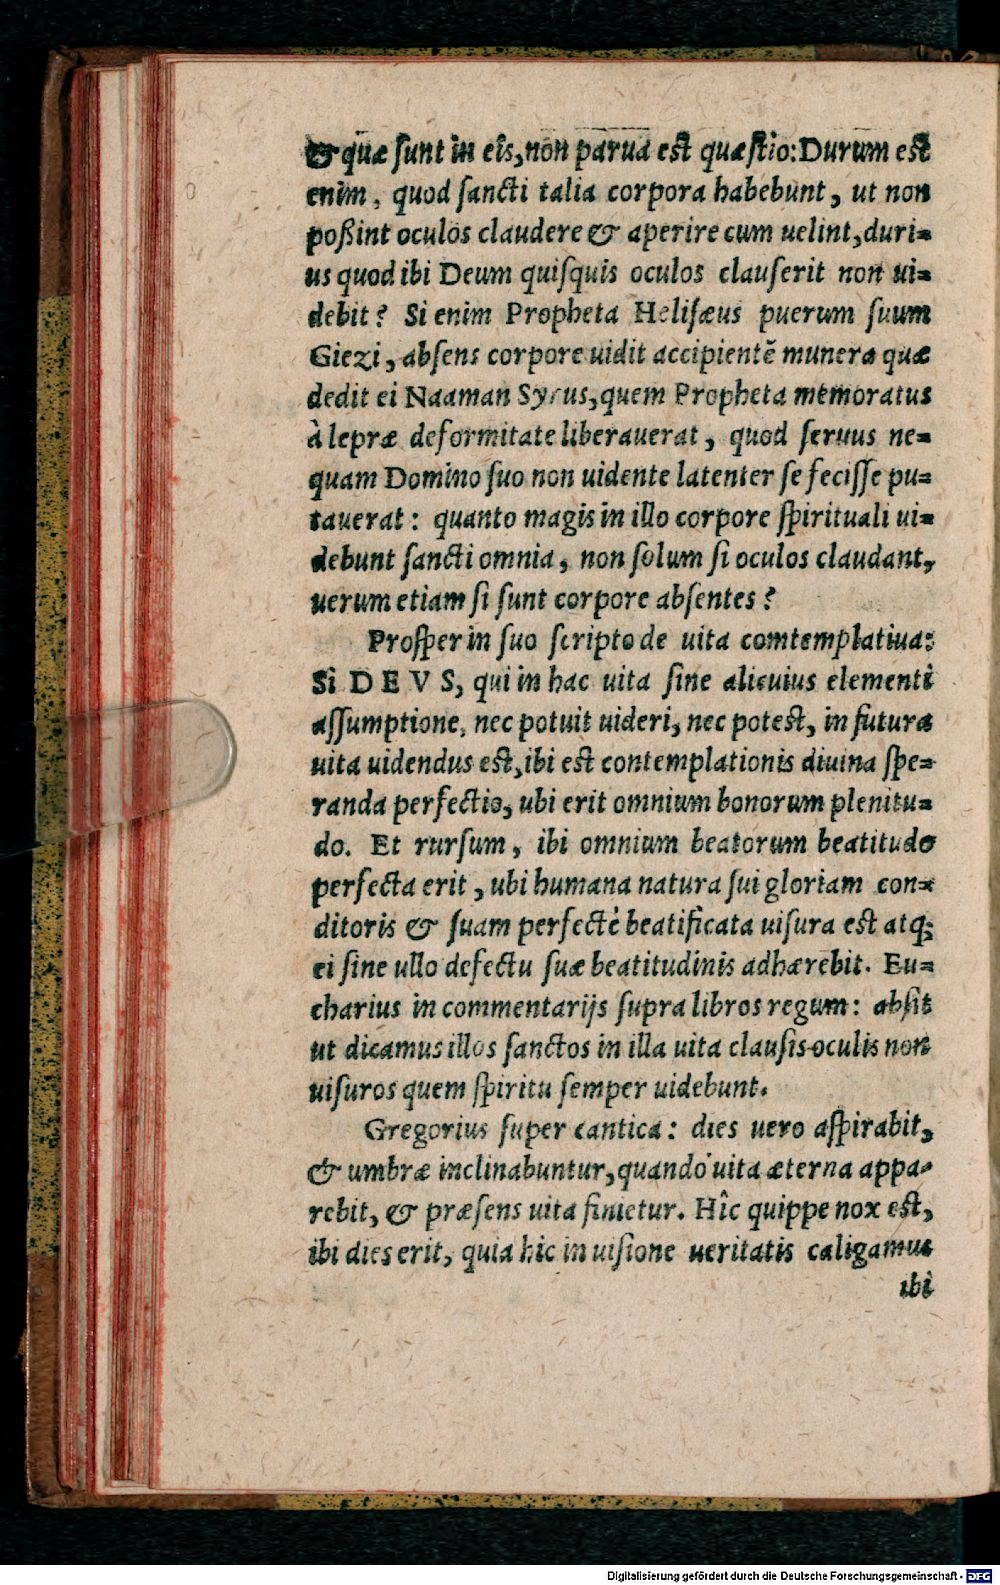 & quæ ſunt in eis, non parua eſt quæſtio: Durum eſt
enim, quod ſancti talia corpora habebunt, ut non
poßint oculos claudere & aperire cum uelint, duri=
us quod ibi Deum quiſquis oculos clauſerit non ui=
debit? Si enim Propheta Heliſæus puerum ſuum
Giezi, abſens corpore uidit accipientē munera quæ
dedit ei Naaman Syrus, quem Propheta memoratus
à lepræ deformitate liberauerat, quod ſeruus ne=
quam Domino ſuo non uidente latenter ſe feciſſe pu=
tauerat: quanto magis in illo corpore ſpirituali ui=
debunt ſancti omnia, non ſolum ſi oculos claudant,
uerum etiam ſi ſunt corpore abſentes?
Proſper in ſuo ſcripto de uita comtemplatiua:
Si DEVS, qui in hac uita ſine alicuius elementi
aſſumptione, nec potuit uideri, nec poteſt, in futura
uita uidendus eſt, ibi eſt contemplationis diuina ſpe=
randa perfectio, ubi erit omnium bonorum plenitu=
do. Et rurſum, ibi omnium beatorum beatitudo
perfecta erit, ubi humana natura ſui gloriam con=
ditoris & ſuam perfectè beatificata uiſura eſt atq;
ei ſine ullo defectu ſuæ beatitudinis adhærebit. Eu=
charius in commentarijs ſupra libros regum: abſit
ut dicamus illos ſanctos in illa uita clauſis oculis non
uiſuros quem ſpiritu ſemper uidebunt.
Gregorius ſuper cantica: dies uero aſpirabit,
& umbræ inclinabuntur, quando uita æterna appa=
rebit, & præſens uita finietur. Hîc quippe nox eſt,
ibi dies erit, quia hic in uiſione ueritatis caligamus
ibi
Digitalisierung gefördert durch die Deutsche Forschungsgemeinschaft - DFG